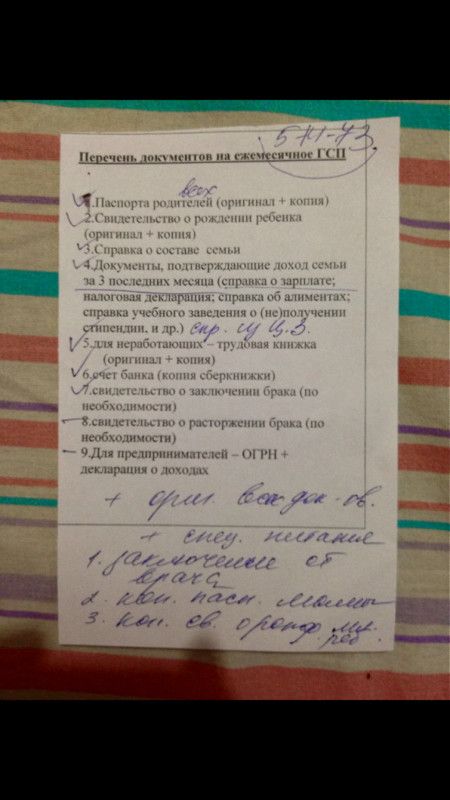 571-73.
Перечень документов на ежемесячное ГСП
всех
1.Паспорта родителей (оригинал + копия)
2.Свидетельство о рождении ребенка
(оригинал + копия)
3.Справка о составе семьи
4.Документы, подтверждающие доход семьи
за 3 последних месяца (справка о зарплате;
налоговая декларация; справка об алиментах;
справка учебного заведения о (не)получении
стипендии, и др.) спр. Ц.З.
5.для неработающих – трудовая книжка
(оригинал + копия)
6.счет банка (копия сберкнижки)
7.свидетельство о заключении брака (по
необходимости)
8.свидетельство о расторжении брака (по
необходимости)
9.Для предпринимателей – ОГРН +
декларация о доходах
+ ориг. всех док-ов.
+ спец. питание
1. заключение от
врача
2. коп. пасп. мамы
3. коп. св. о рожд.